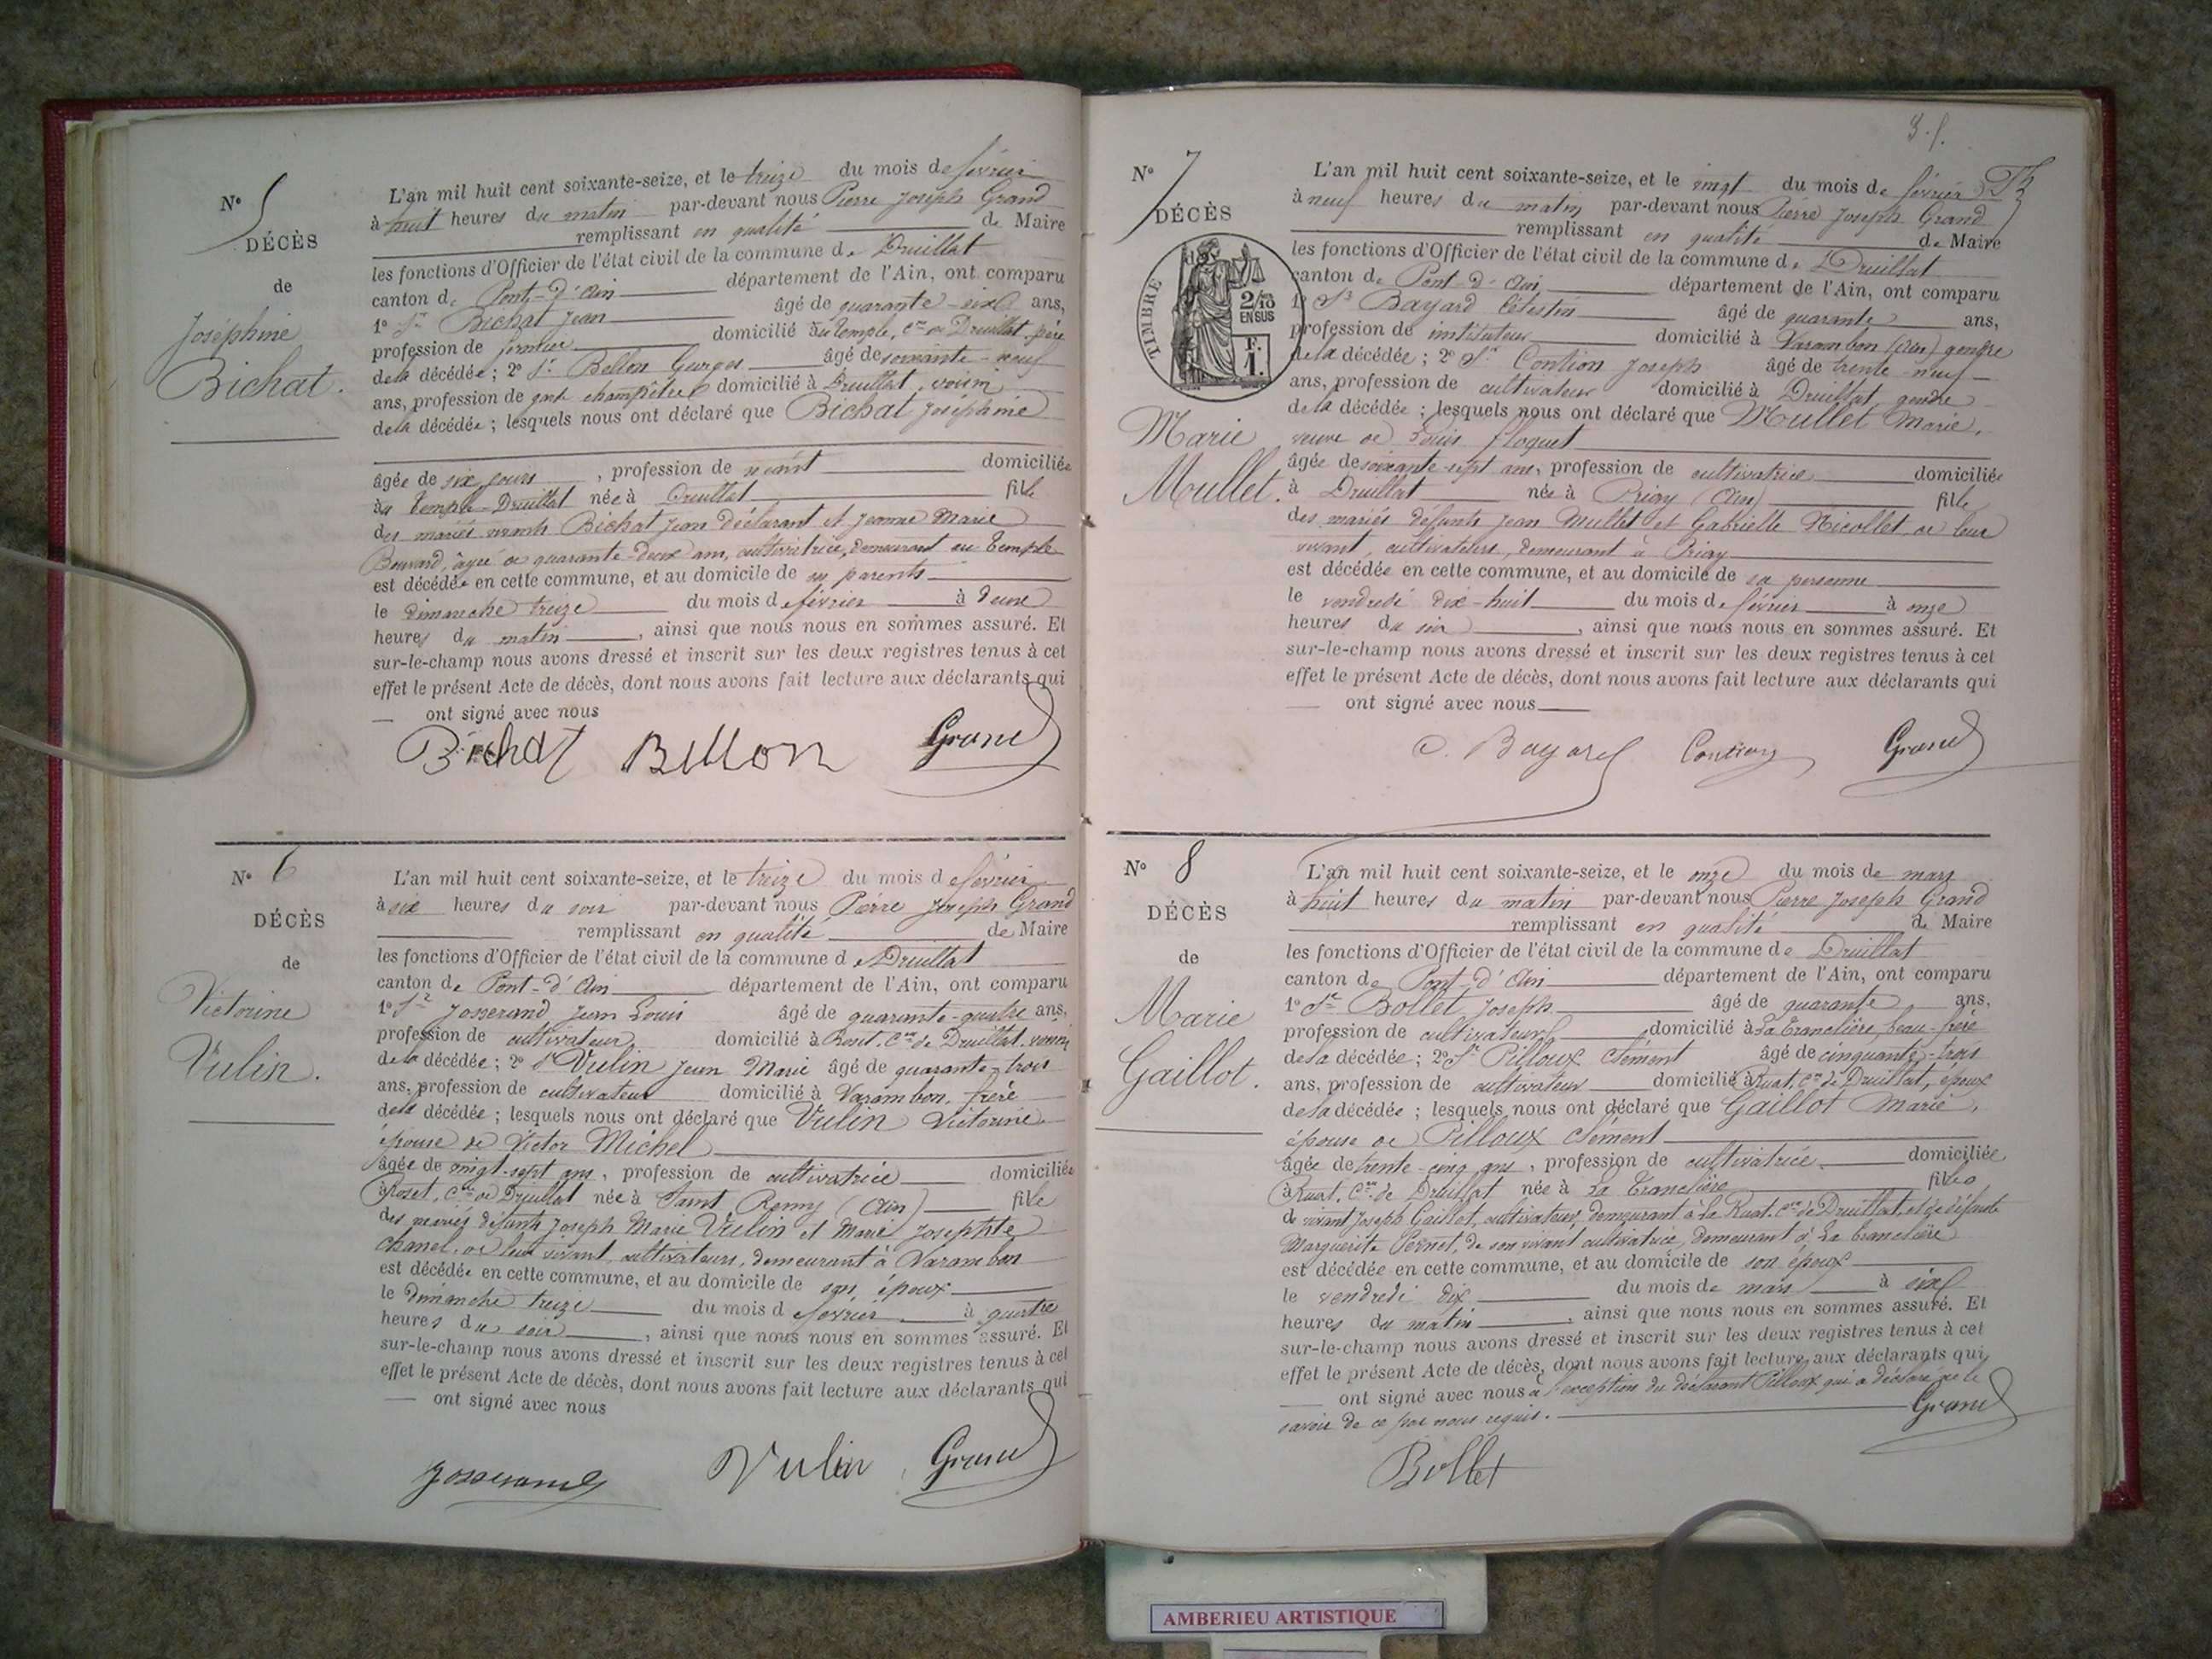 N° 5
DÉCÈS
de
Joséphine
Bichat.
L'an mil huit cent soixante-seize, et le treize du mois de février
à huit heures du matin par-devant nous Pierre Joseph Grand
remplissant en qualité de Maire
les fonctions d'Officier de l'état civil de la commune de Druillat
canton de Pont-d'Ain département de l'Ain, ont comparu
1° Sr Bichat Jean âgé de quarante-six ans,
profession de fermier domicilié au temple, Cne de Druillat, père
de la décédée; 2° Sr Bellon Georges âgé de soixante-neuf
ans, profession de garde champêtre domicilié à Druillat, voisin
de la décédée; lesquels nous ont déclaré que Bichat Joséphine
âgée de six jours, profession de néant domiciliée
au temple-Druillat née à Druillat fille
des mariés vivants Bichat Jean déclarant et Jeanne Marie
Bouvard, âgée de quarante-deux ans, cultivatrice, demeurant au temple
est décédée en cette commune, et au domicile de ses parents
le dimanche treize du mois de février à deux
heures du matin, ainsi que nous nous en sommes assuré. Et
sur-le-champ nous avons dressé et inscrit sur les deux registres tenus à cet
effet le présent Acte de décès, dont nous avons fait lecture aux déclarants qui
ont signé avec nous
Bichat Bellon Grand
N° 6
DÉCÈS
de
Victorine
Vulin.
L'an mil huit cent soixante-seize, et le treize du mois de février
à six heures du soir par-devant nous Pierre Joseph Grand
remplissant en qualité de Maire
les fonctions d'Officier de l'état civil de la commune de Druillat
canton de Pont-d'Ain département de l'Ain, ont comparu
1° Sr Josserand Jean Louis âgé de quarante-quatre ans,
profession de cultivateur domicilié à Roset, Cne de Druillat, voisin
de la décédée; 2° Sr Vulin Jean Marie âgé de quarante-trois
ans, profession de cultivateur domicilié à Varambon, frère
de la décédée; lesquels nous ont déclaré que Vulin Victorine
épouse de Victor Michel
âgée de vingt-sept ans, profession de cultivatrice domiciliée
à Roset, Cne de Druillat née à Saint Remy (Ain) fille
des mariés défunts Joseph Marie Vulin et Marie Josephte
Chanel, de leur vivant, cultivateurs, demeurant à Varambon
est décédée en cette commune, et au domicile de son époux
le dimanche treize du mois de février à quatre
heures du soir, ainsi que nous nous en sommes assuré. Et
sur-le-champ nous avons dressé et inscrit sur les deux registres tenus à cet
effet le présent Acte de décès, dont nous avons fait lecture aux déclarants qui
ont signé avec nous
Josserand Vulin Grand
3. f.
N° 7
DÉCÈS
TIMBRE
2/10 EN SUS
F. 1.
Marie
Mullet.
L'an mil huit cent soixante-seize, et le vingt du mois de février
à neuf heures du matin par-devant nous Pierre Joseph Grand
remplissant en qualité de Maire
les fonctions d'Officier de l'état civil de la commune de Druillat
canton de Pont-d'Ain, département de l'Ain, ont comparu
1° Sr Bayard Célestin âgé de quarante ans,
profession de instituteur domicilié à Varambon (Ain) gendre
de la décédée; 2° Sr Contion Joseph âgé de trente-neuf
ans, profession de cultivateur domicilié à Druillat, gendre
de la décédée; lesquels nous ont déclaré que Mullet Marie,
veuve de Louis Floquet
âgée de soixante-sept ans, profession de cultivatrice domiciliée
à Druillat née à Priay (Ain) fille
des mariés défunts Jean Mullet et Gabrielle Nicollet, de leur
vivant, cultivateurs, demeurant à Priay
est décédée en cette commune, et au domicile de sa personne
le vendredi dix-huit du mois de février à onze
heures du soir, ainsi que nous nous en sommes assuré. Et
sur-le-champ nous avons dressé et inscrit sur les deux registres tenus à cet
effet le présent Acte de décès, dont nous avons fait lecture aux déclarants qui
ont signé avec nous
C. Bayard Contion Grand
N° 8
DÉCÈS
de
Marie
Gaillot.
L'an mil huit cent soixante-seize, et le onze du mois de mars
à huit heures du matin par-devant nous Pierre Joseph Grand
remplissant en qualité de Maire
les fonctions d'Officier de l'état civil de la commune de Druillat
canton de Pont-d'Ain département de l'Ain, ont comparu
1° Sr Bollet Joseph âgé de quarante ans,
profession de cultivateur domicilié à La Tranclière, beau-frère
de la décédée; 2° Sr Pilloux Clément âgé de cinquante-trois
ans, profession de cultivateur domicilié à Ruat, Cne de Druillat, époux
de la décédée; lesquels nous ont déclaré que Gaillot Marie,
épouse de Pilloux Clément
âgée de trente-cinq ans, profession de cultivatrice domiciliée
à Ruat, Cne de Druillat née à La Tranclière fille
de vivant Joseph Gaillot, cultivateur, demeurant à la Ruat, Cne de Druillat, et de défunte
Marguerite Pernet, de son vivant cultivatrice, demeurant à La Tranclière
est décédée en cette commune, et au domicile de son époux
le vendredi dix du mois de mars à six
heures du matin, ainsi que nous nous en sommes assuré. Et
sur-le-champ nous avons dressé et inscrit sur les deux registres tenus à cet
effet le présent Acte de décès, dont nous avons fait lecture aux déclarants qui
ont signé avec nous à l'exception du déclarant Pilloux qui a déclaré ne le
savoir de ce par nous requis. Grand
Bollet
AMBERIEU ARTISTIQUE